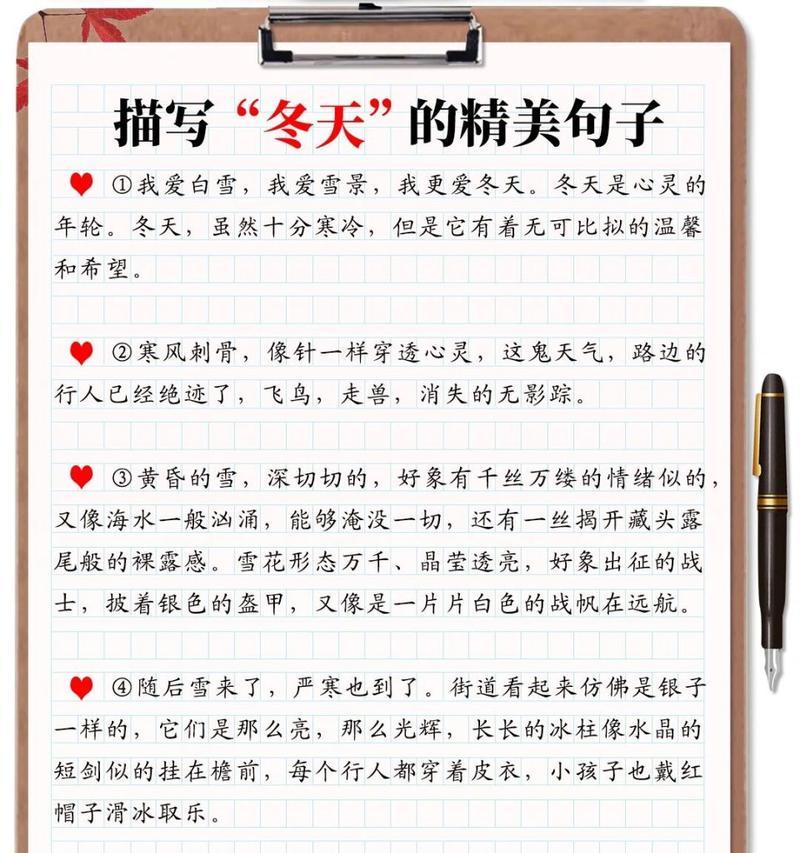 描写“冬天”的精美句子
①我爱白雪，我爱雪景，我更爱冬天。冬天是心灵的
年轮。冬天，虽然十分寒冷，但是它有着无可比拟的温馨
和希望。
②寒风刺骨，像针一样穿透心灵，这鬼天气，路边的
行人已经绝迹了，飞鸟，走兽，消失的无影踪。
③黄昏的雪，深切切的，好象有千丝万缕的情绪似的，
又像海水一般汹涌，能够淹没一切，还有一丝揭开藏头露
尾般的裸露感。雪花形态万千、晶莹透亮，好象出征的战
士，披着银色的盔甲，又像是一片片白色的战帆在远航。
④随后雪来了，严寒也到了。街道看起来仿佛是银子
一样的，它们是那么亮，那么光辉，长长的冰柱像水晶的
短剑似的挂在檐前，每个行人都穿着皮衣，小孩子也戴红
帽子滑冰取乐。